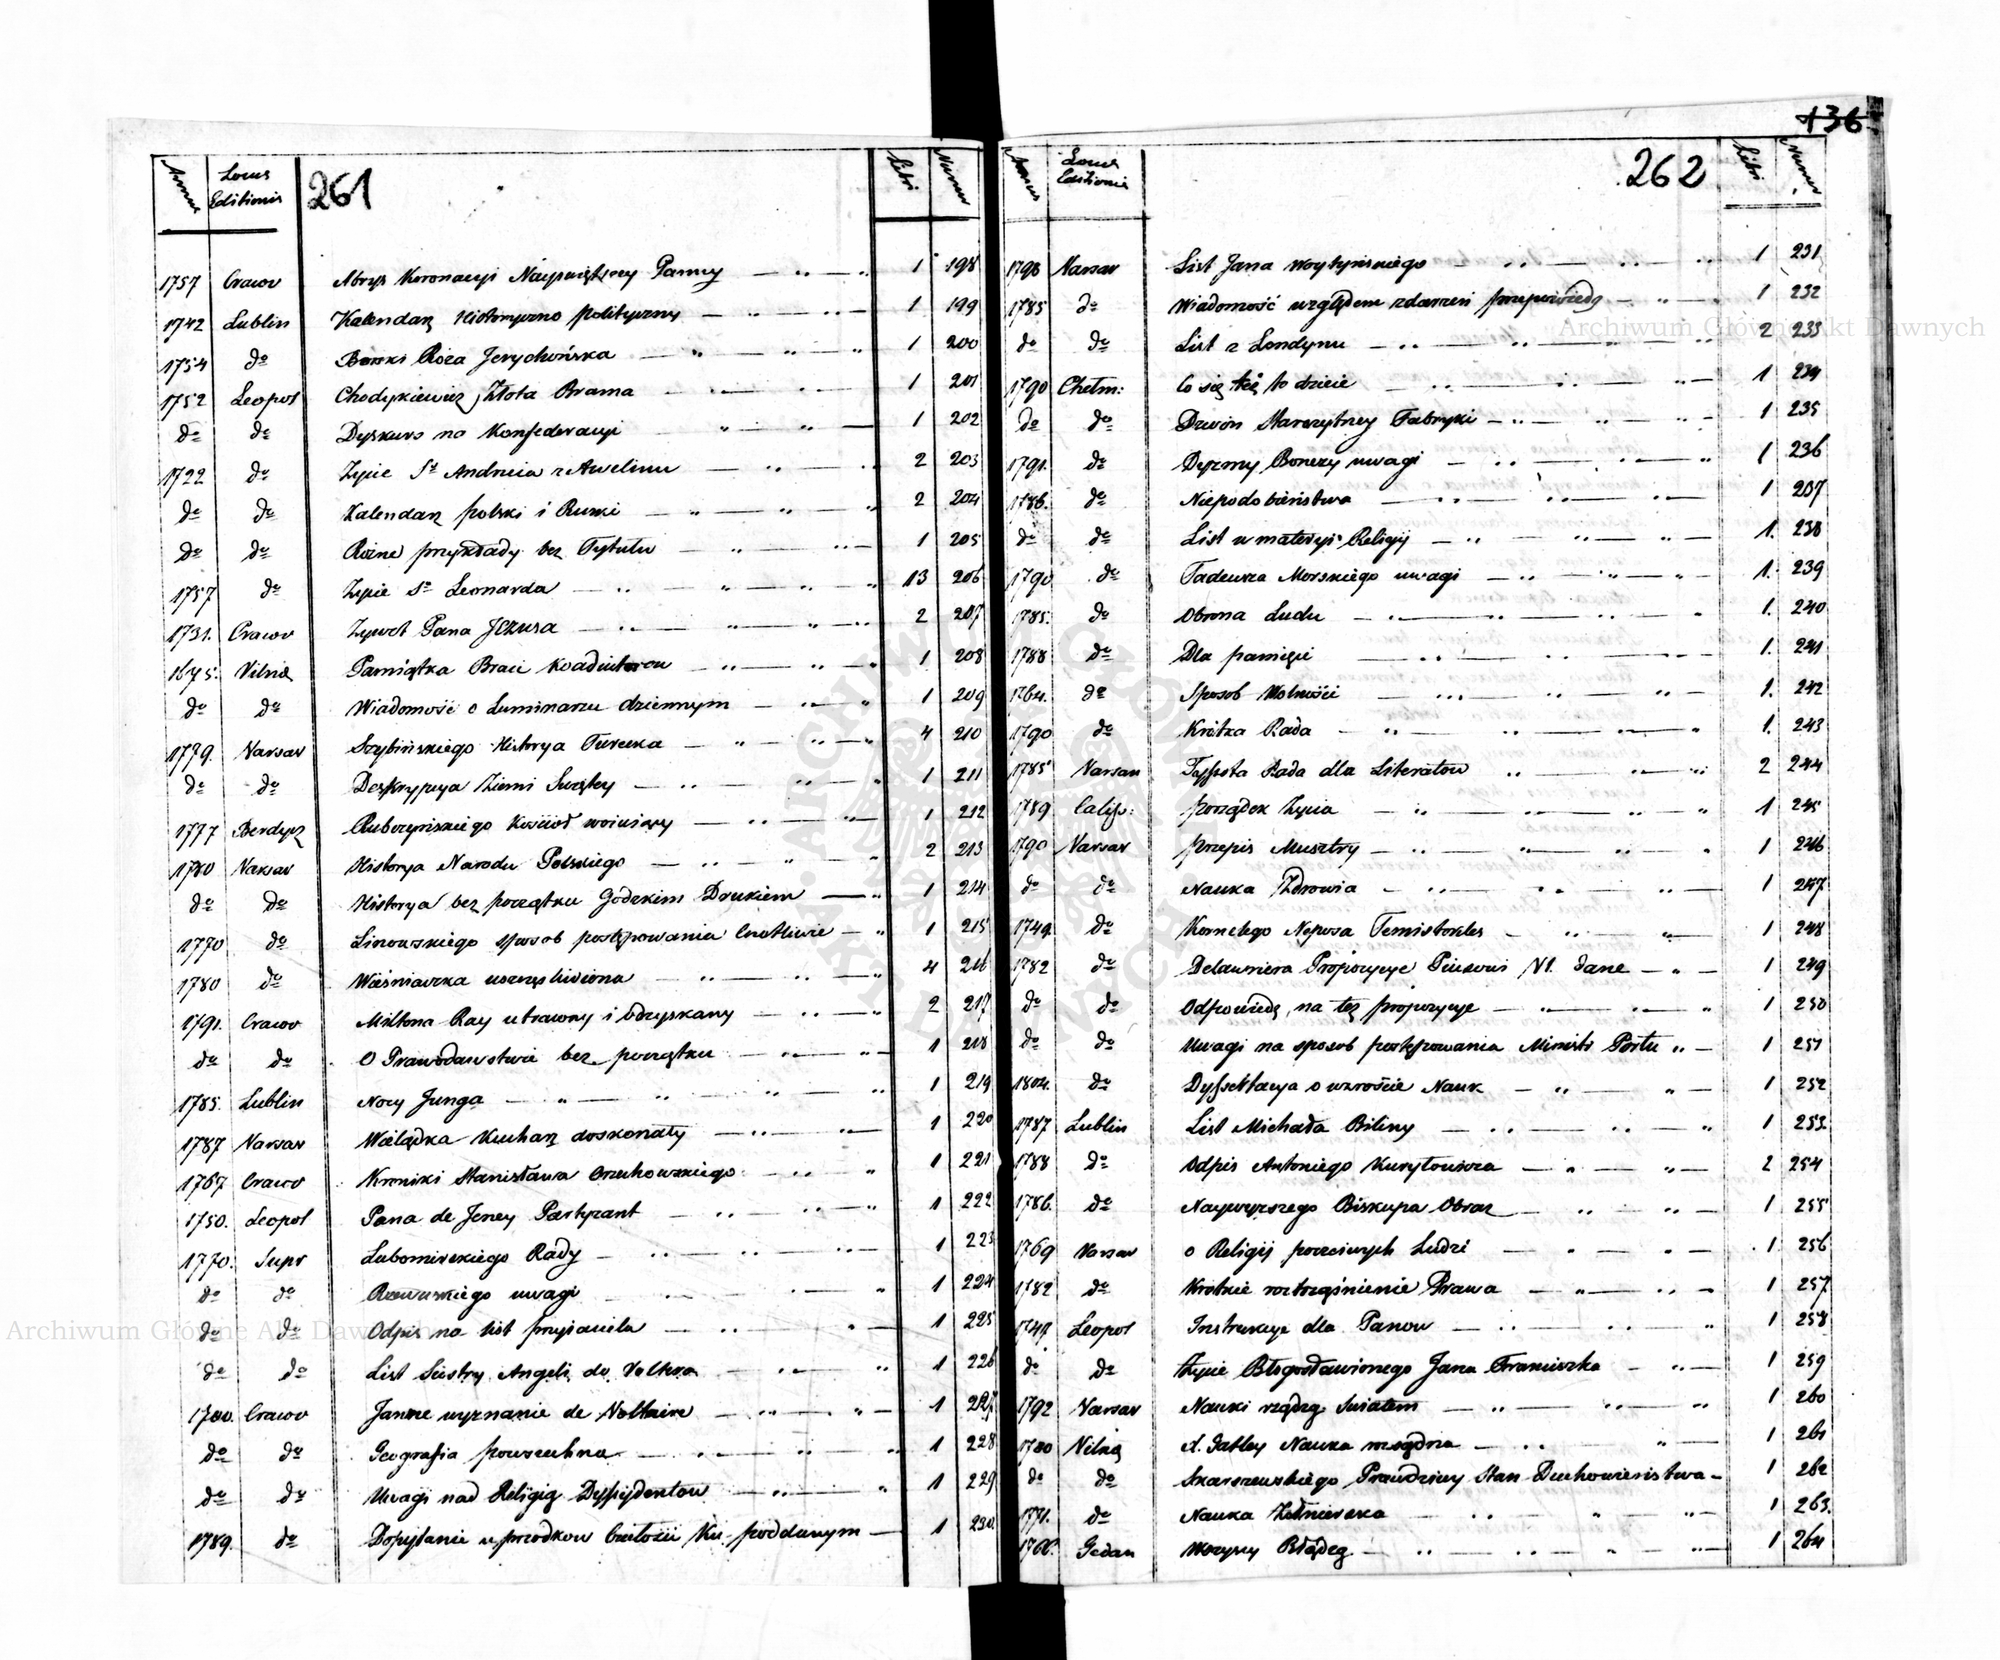 136
Annus Locus Editionis 261 Libri Numer
1757 Cracov Abrys Koronacyi Nayswiętszey Panny 1 198
1742 Lublin Kalendarz Historyczno polityczny 1 199
1754 do Boski Róża Jerychońska 1 200
1752 Leopol Chodykiewicz Złota Brama 1 201
do do Dyskurs na Konfederacyi 1 202
1722 do Zycie St Andrzeia z Awelinu 2 203
do do Kalendarz polski i Ruski 2 204
do do Rózne przykłady bez Tytułu 1 205
1757 do Zycie So Leonarda 13 206
1731. Cracov Zywot Pana Jezusa 2 207
1675. Vilnæ Pamiątka Braci Koadiutorow 1 208
do do Wiadomość o Luminarzu dziennym 1 209
1779. Varsav Szybińskiego Historya Turecka 4 210
do do Deskrypcya Ziemi Swiętey 1 211
1777 Berdycz Rubczyńskiego Kościoł woiuiący 1 212
1780 Varsav Historya Narodu Polskiego 2 213
do do Historya bez początku Godzkim Drukiem 1 214
1770 do Linowskiego sposob postępowania Cnotliwie 1 215
1780 do Wieśniaczka uszczęśliwiona 4 216
1791. Cracov Miltona Ray utracony i odzyskany 2 217
do do O Prawodawstwie bez początku 1 218
1785. Lublin Nocy Junga 1 219
1787 Varsav Wielądka Kucharz doskonały 1 220
1767. Cracov Kroniki Stanisława Orzechowskiego 1 221
1750. Leopol Pana de Jeney Partyzant 1 222
1770. Supr Lubomirskiego Rady 1 223
do do Rzewuskiego uwagi 1 224
do do Odpis na list przyiaciela 1 225
do do List Siostry Angeli do Voltera 1 226
1780. Cracov Janne wyznanie de Voltaire 1 227
do do Geografia powszechna 1 228
do do Uwagi nad Religią Dyssydentow 1 229
1789. do poddanym 1 230
Annus Locus Editionis 262 Libri Numer
1798 Varsav List Jana Woytyńskiego 1 231
1785 do Wiadomość względem zdarzeń przepowiedz 1 232
do do List z Londynu 2 233
1790 Chełm: Co się też to dzieie 1 234
do do Dzwon Starożytney Fabryki 1 235
1791. do Dyzmy Bonczy uwagi 1 236
1786. do Niepodobieństwa 1 237
do do List w materyi Religij 1. 238
1790 do Tadeusza Morskiego uwagi 1. 239
1785. do Obrona Ludu 1. 240
1788 do Dla pamięci 1. 241
1764. do Sposob Wolności 1. 242
1790 do Krótka Rada 1. 243
1785 Varsav Rada dla Literatow 2 244
1789 Calis: porządek Zycia 1 245
1790 Varsav przepis Musztry 1 246
do do Nauka Zdrowia 1 247
1749. do Kornelego Neposa Temistokles 1 248
1782 do Delawniera Propozycye Piusowi VI. dane 1 249
do do Odpowiedz na też propozycye 1 250
do do Uwagi na sposob postępowania Ministr Portu 1 251
1804. do Dyssertacya o wzroście Nauk 1 252
1787 Lublin List Michała Biliny 1 253
1788 do Odpis Antoniego Kuryłowicza 2 254
1786. do Naywyższego Biskupa Obraz 1 255
1769 Varsav o Religij poczciwych Ludzi 1 256
1782 do Krotkie roztrząśnienie Prawa 1 257
1749 Leopol Instrukcye dla Panow 1 258
do do Życie Błogosławionego Jana Franciszka 1 259
1792 Varsav Nauki rządzą Swiatem 1 260
1780 Vilnæ Nauka rozsądna 1 261
do do Skarszewskiego Prawdziwy Stan Duchowieństwa 1 262
1771. do Nauka Żołnierska 1 263
1766. Gedan 1 264
Archiwum Główne Akt Dawnych
Archiwum Główne Akt Dawnych